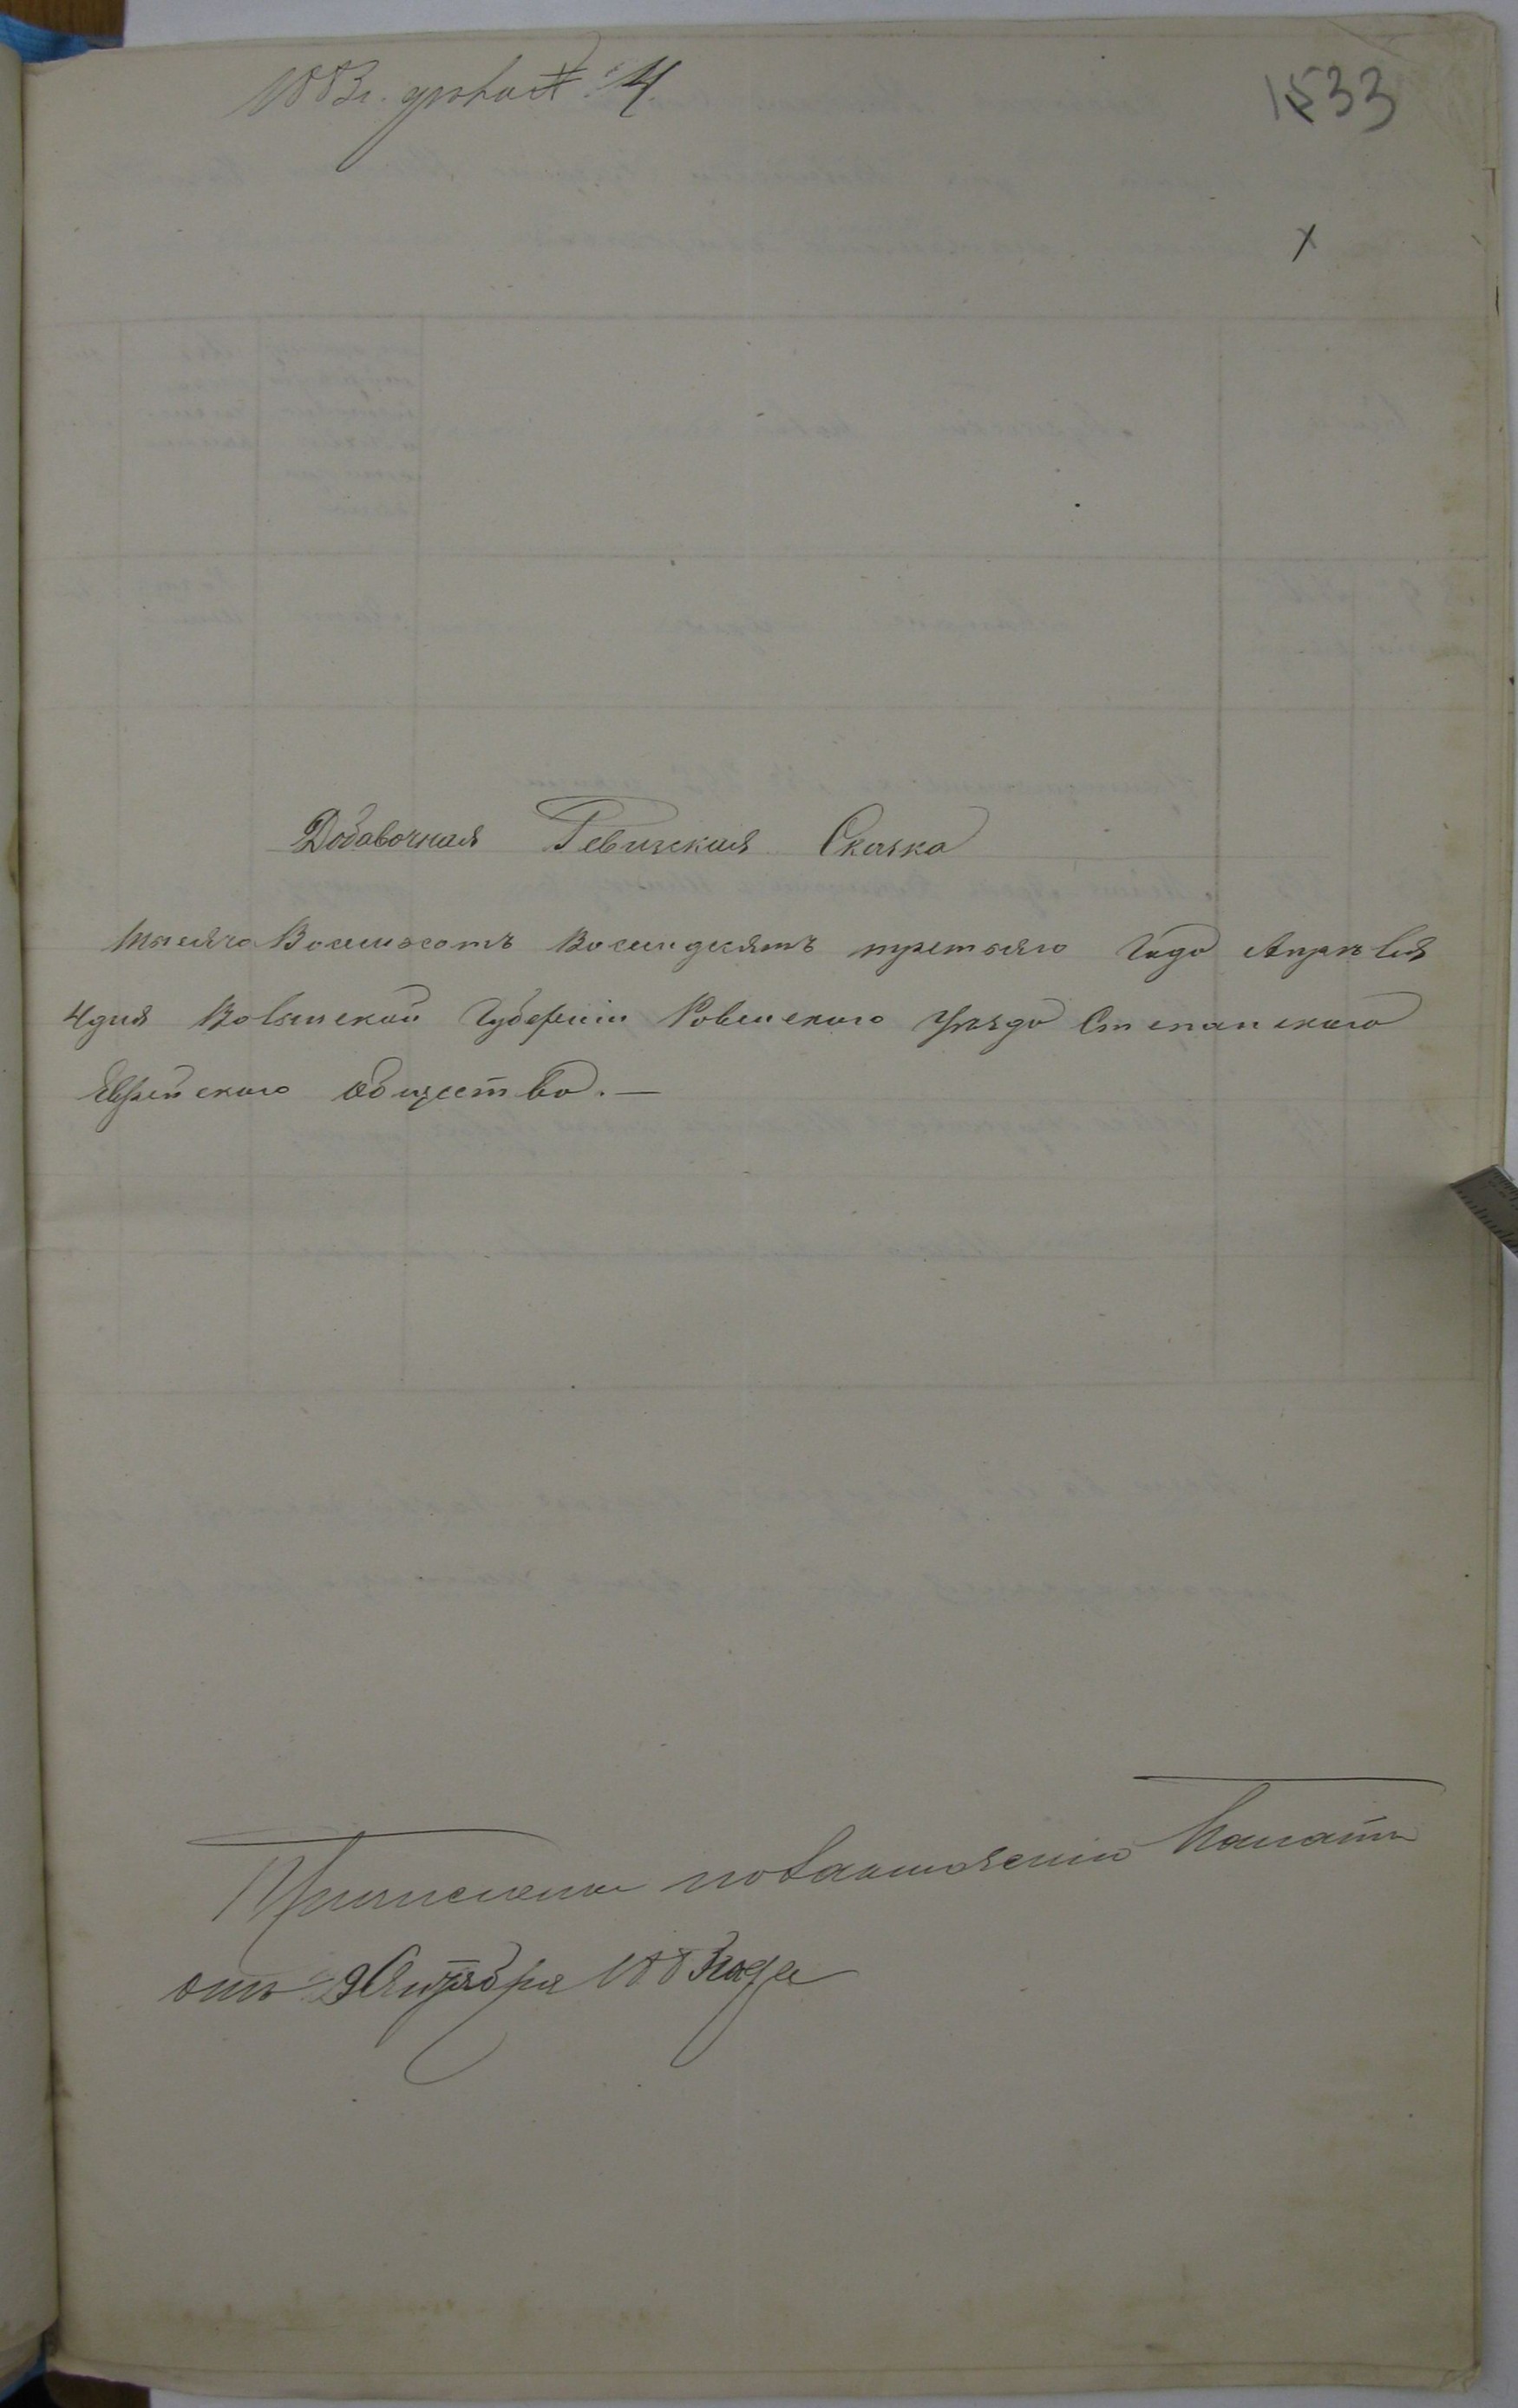 1883 г. графа № 4.
1533
х
Добавочная Ревизская Сказка
тысяча Восемьсотъ Восемдесятъ третьяго Года Апрѣля
4 дня Волынской Губерніи Ровенского Уѣзда Степанского
Еврейского общества. —
Причислены по заключенію Палаты
отъ 9 Октября 1883 года